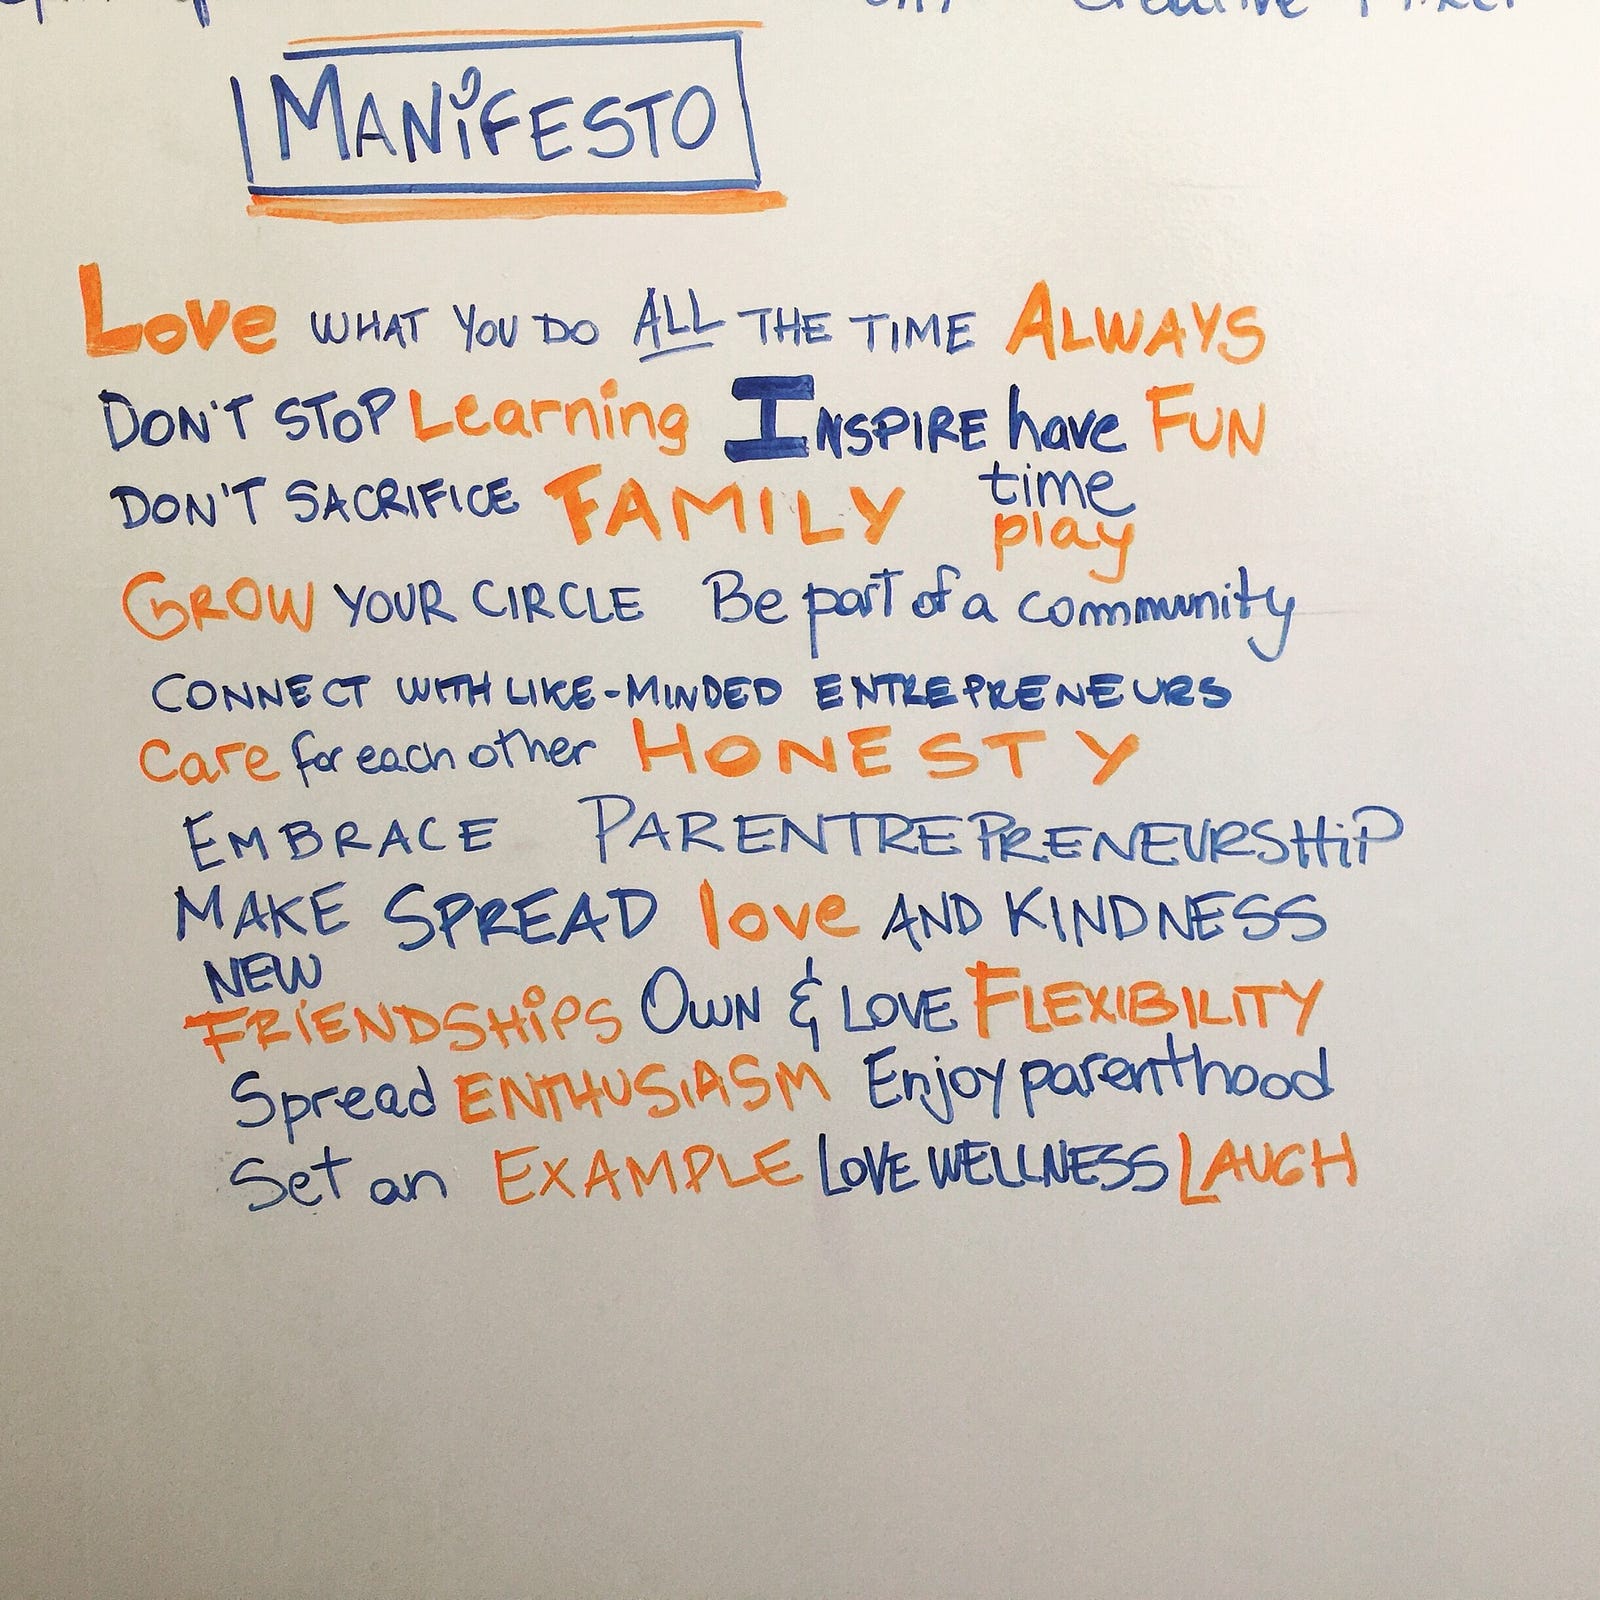 MANiFESTO
Love WHAT YOU DO ALL THE TIME ALWAYS
DON'T STOP Learning INSPIRE have FUN
DON'T SACRIFICE FAMILY time
play
GROW YOUR CIRCLE Be part of a community
CONNECT WITH LIKE-MINDED ENTREPRENEURS
Care for each other HONESTY
EMBRACE PARENTREPRENEURSHiP
MAKE SPREAD love AND KINDNESS
NEW
FRiENDSHiPS OWN & LOVE FLEXIBILITY
Spread ENTHUSiASM Enjoy parenthood
Set an EXAMPLE LOVE WELLNESS LAUGH